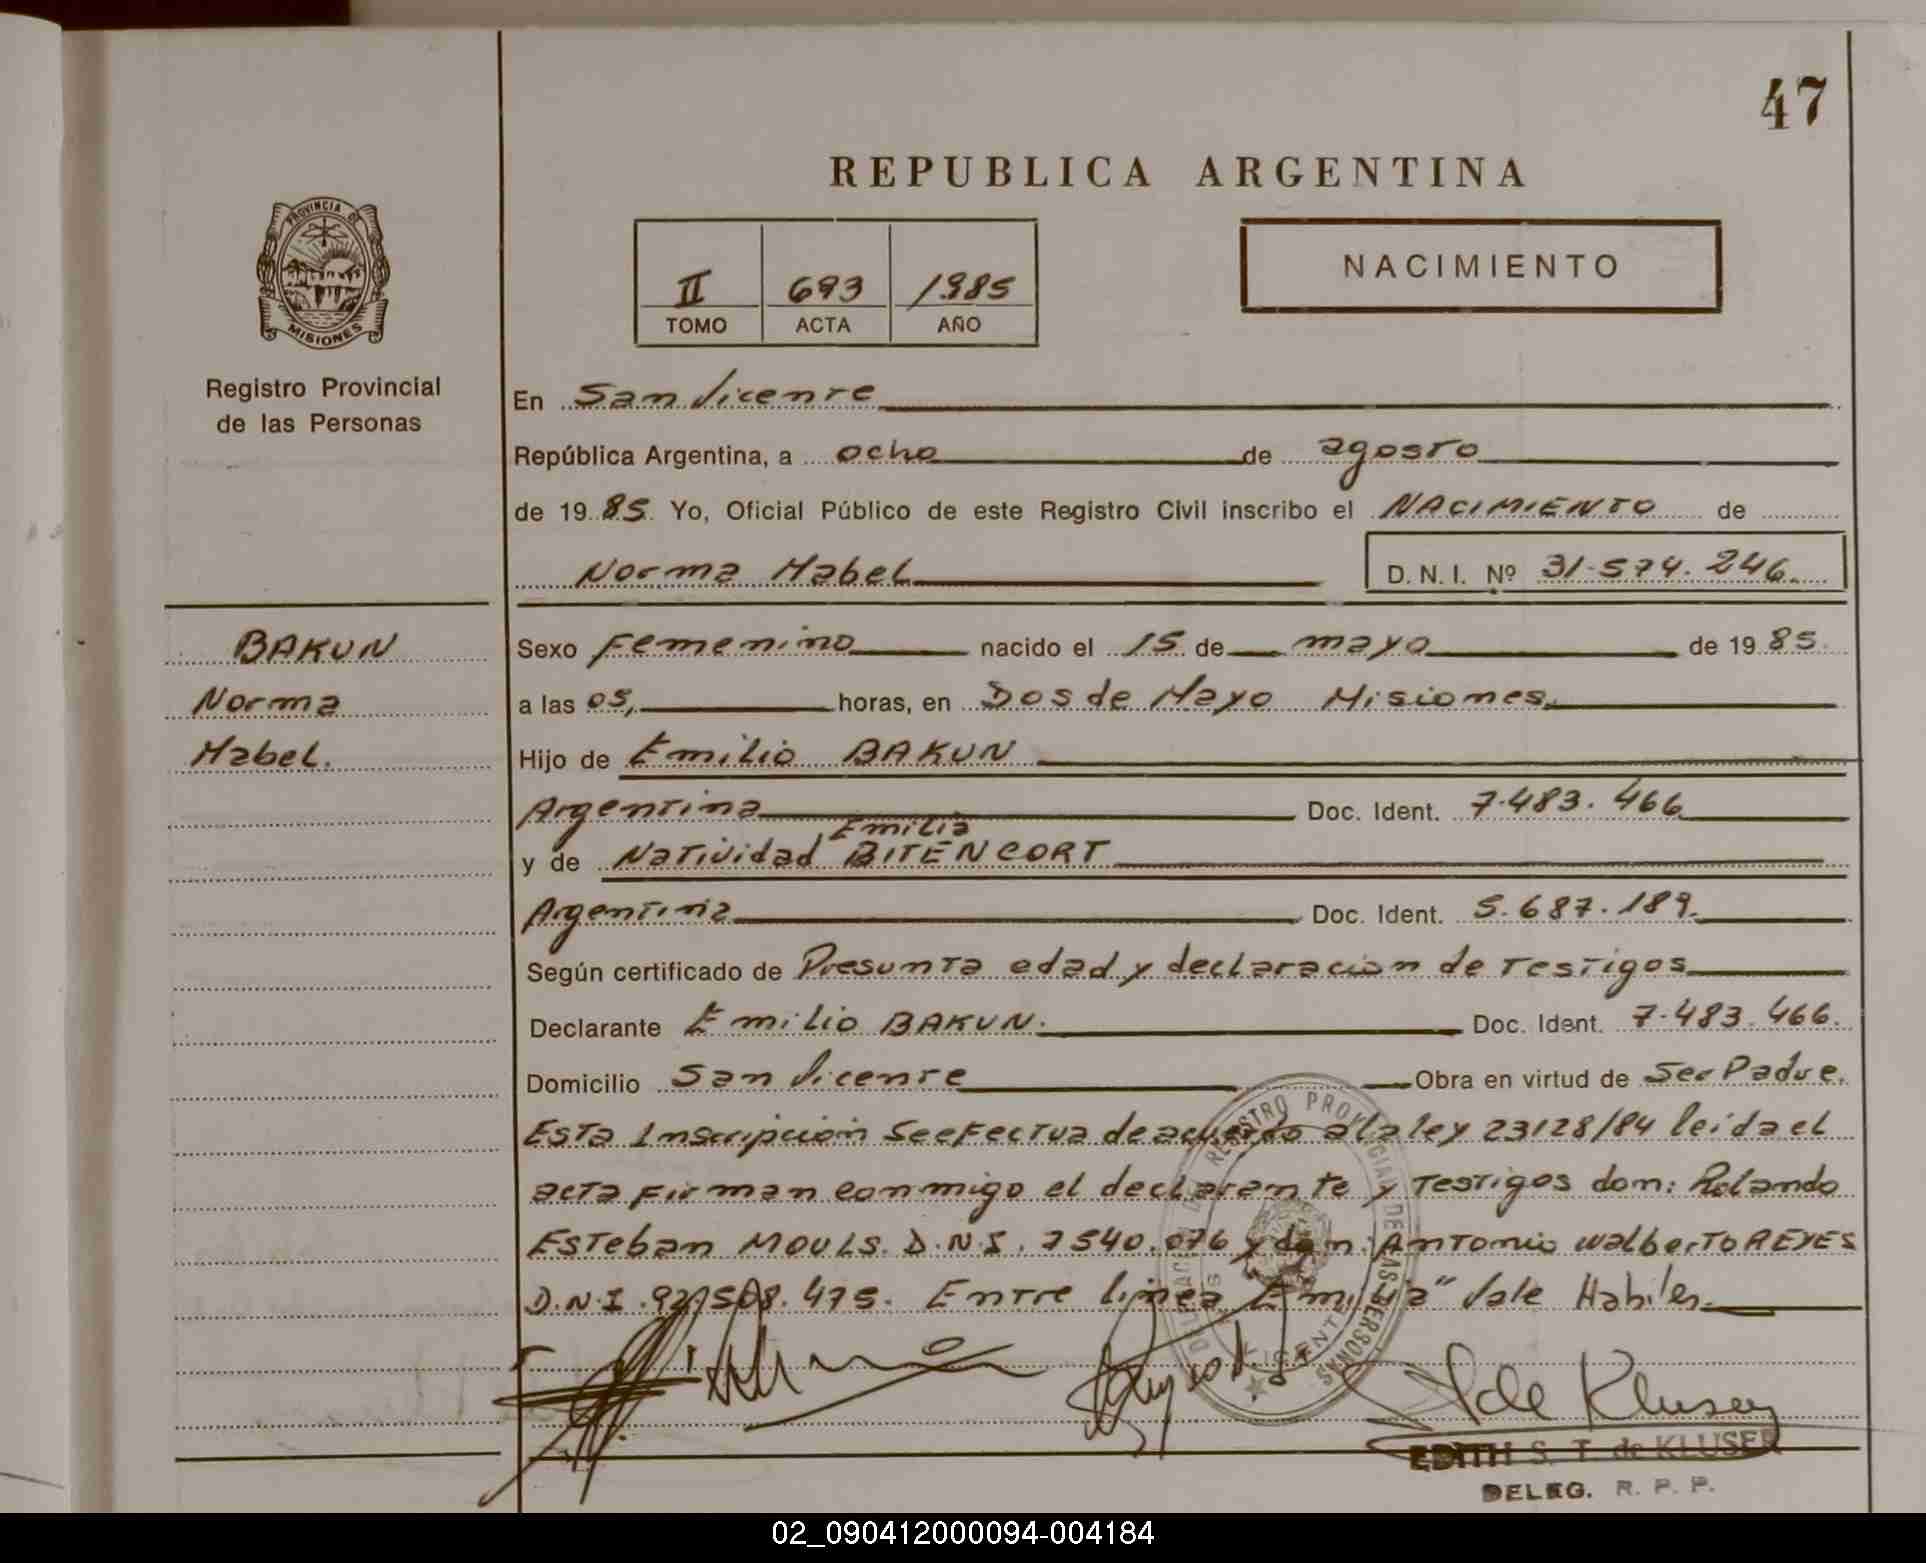 47
REPUBLICA ARGENTINA
PROVINCIA DE
MISIONES
Registro Provincial
de las Personas
II 693 1985
TOMO ACTA AÑO
NACIMIENTO
En San Vicente
República Argentina, a ocho de agosto
de 19 85. Yo, Oficial Público de este Registro Civil inscribo el NACIMIENTO de
Norma Mabel D. N. I. Nº 31.574.246.
BAKUN
Norma
Mabel.
Sexo Femenino nacido el 15 de mayo de 19 85.
a las 05, horas, en Dos de Mayo Misiones,
Hijo de Emilio BAKUN
Argentina Doc. Ident. 7.483.466
Emilia
y de Natividad BITENCORT
Argentina Doc. Ident. 5.687.189.
Según certificado de Presunta edad y declaracion de testigos
Declarante Emilio BAKUN. Doc. Ident. 7.483.466.
Domicilio San Vicente Obra en virtud de Ser Padre.
Esta Inscripción Se efectua de acuerdo a la ley 23128/84 leida el
acta firman conmigo el declarante y testigos don: Rolando
Esteban MOULS. D.N.I. 7540.076 y don: Antonio Walberto REYES
D.N.I. 92.508.475. Entre linea "Emilia" Vale Habiles.
DELEGACION REGISTRO PROVINCIAL DE LAS PERSONAS
S. VICENTE
de Kluser
EDITH S. T. de KLUSER
DELEG. R. P. P.
02_090412000094-004184